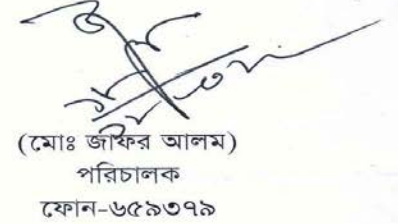 (মোঃ জাফর আলম)
পরিচালক
ফোন-৬৫৯৩৭৯